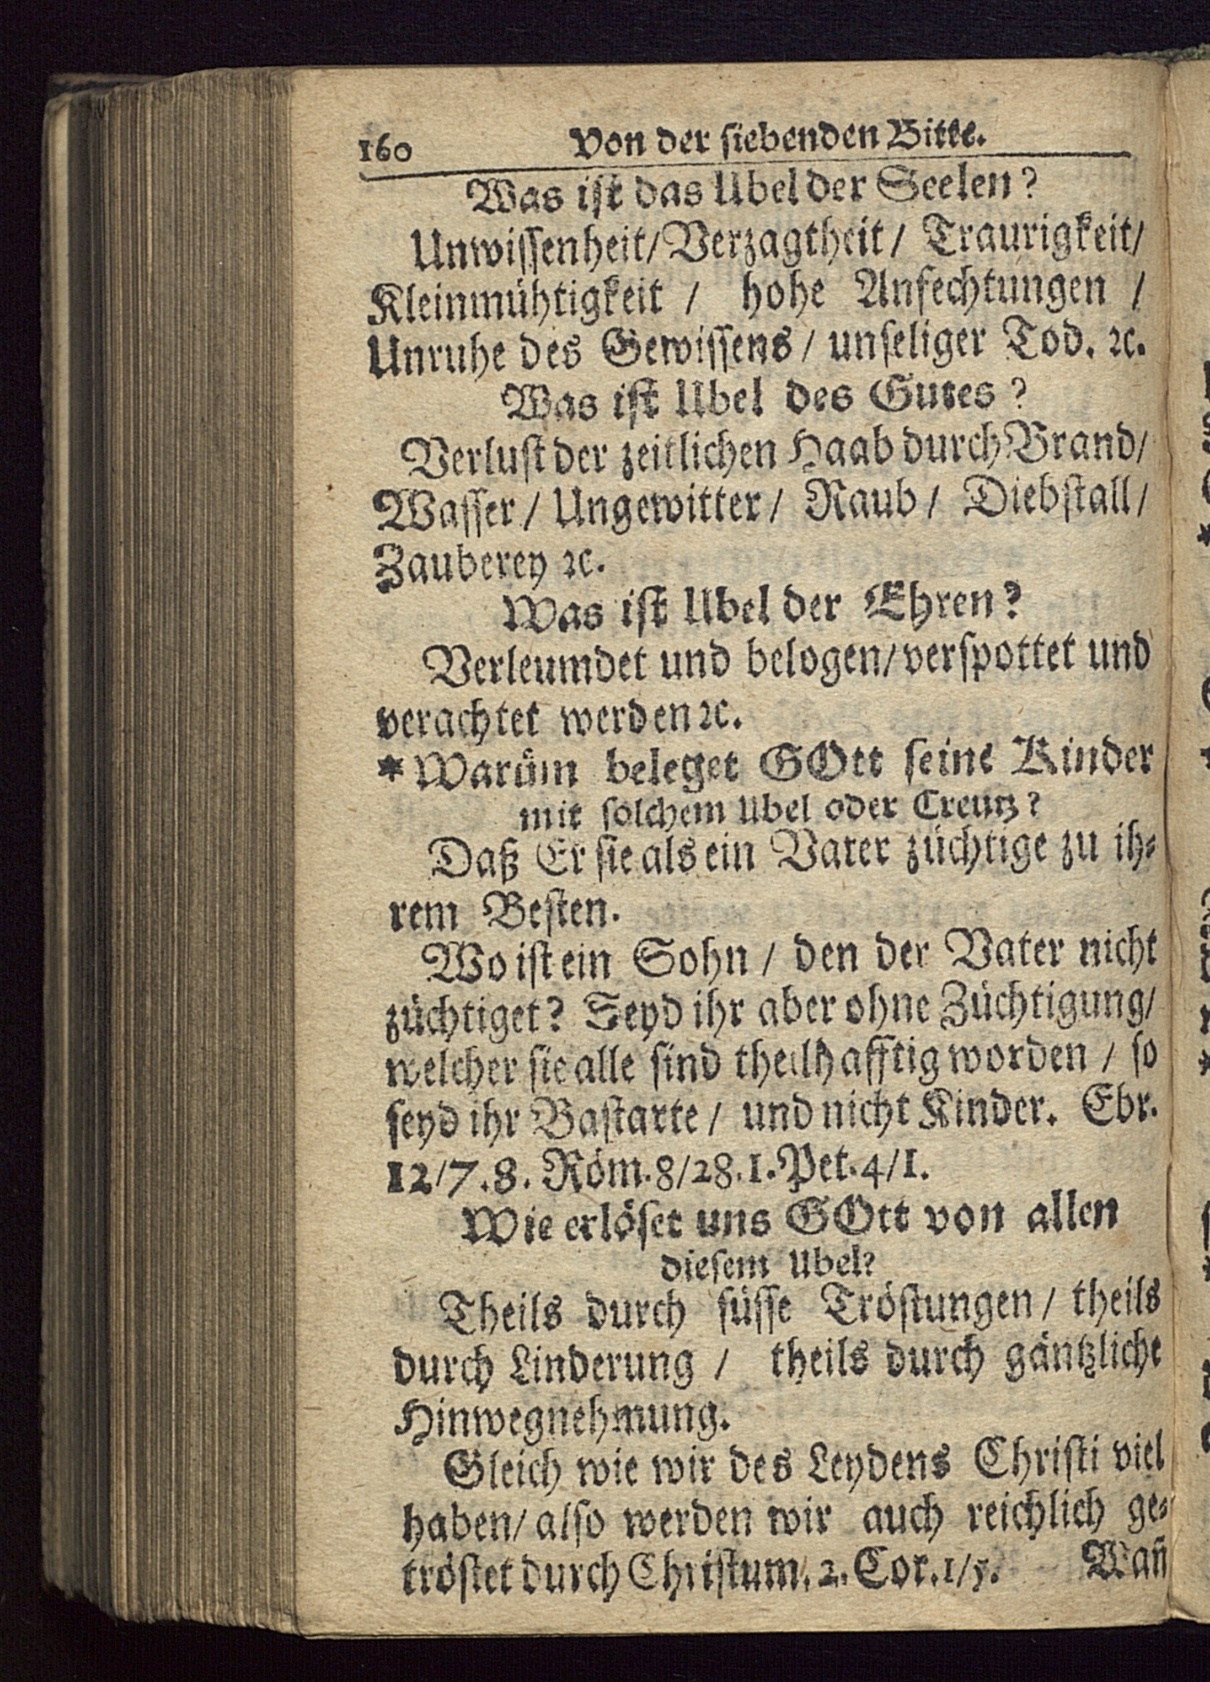 160 Von der siebenden Bitte.
Was ist das Ubel der Seelen?
Unwissenheit/ Verzagtheit/ Traurigkeit/
Kleinmühtigkeit / hohe Anfechtungen /
Unruhe des Gewissens / unseliger Tod. ꝛc.
Was ist Ubel des Gutes?
Verlust der zeitlichen Haab durch Brand/
Wasser / Ungewitter / Raub / Diebstall /
Zauberey ꝛc.
Was ist Ubel der Ehren?
Verleumdet und belogen/ verspottet und
verachtet werden ꝛc.
* Warüm beleget GOtt seine Kinder
mit solchem Ubel oder Creutz?
Daß Er sie als ein Vater züchtige zu ih-
rem Besten.
Wo ist ein Sohn / den der Vater nicht
züchtiget? Seyd ihr aber ohne Züchtigung/
welcher sie alle sind theilhafftig worden / so
seyd ihr Bastarte / und nicht Kinder. Ebr.
12/7.8. Röm.8/28.1.Pet.4/1.
Wie erlöset uns GOtt von allen
diesem Ubel?
Theils durch süsse Tröstungen / theils
durch Linderung / theils durch gäntzliche
Hinwegnehmung.
Gleich wie wir des Leydens Christi viel
haben/ also werden wir auch reichlich ge-
tröstet durch Christum. 2. Cor.1/5. Wañ